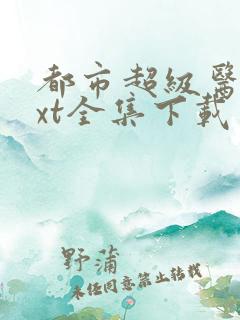 都市超级醫
xt全集下载
野蒲
未经同意禁止转载